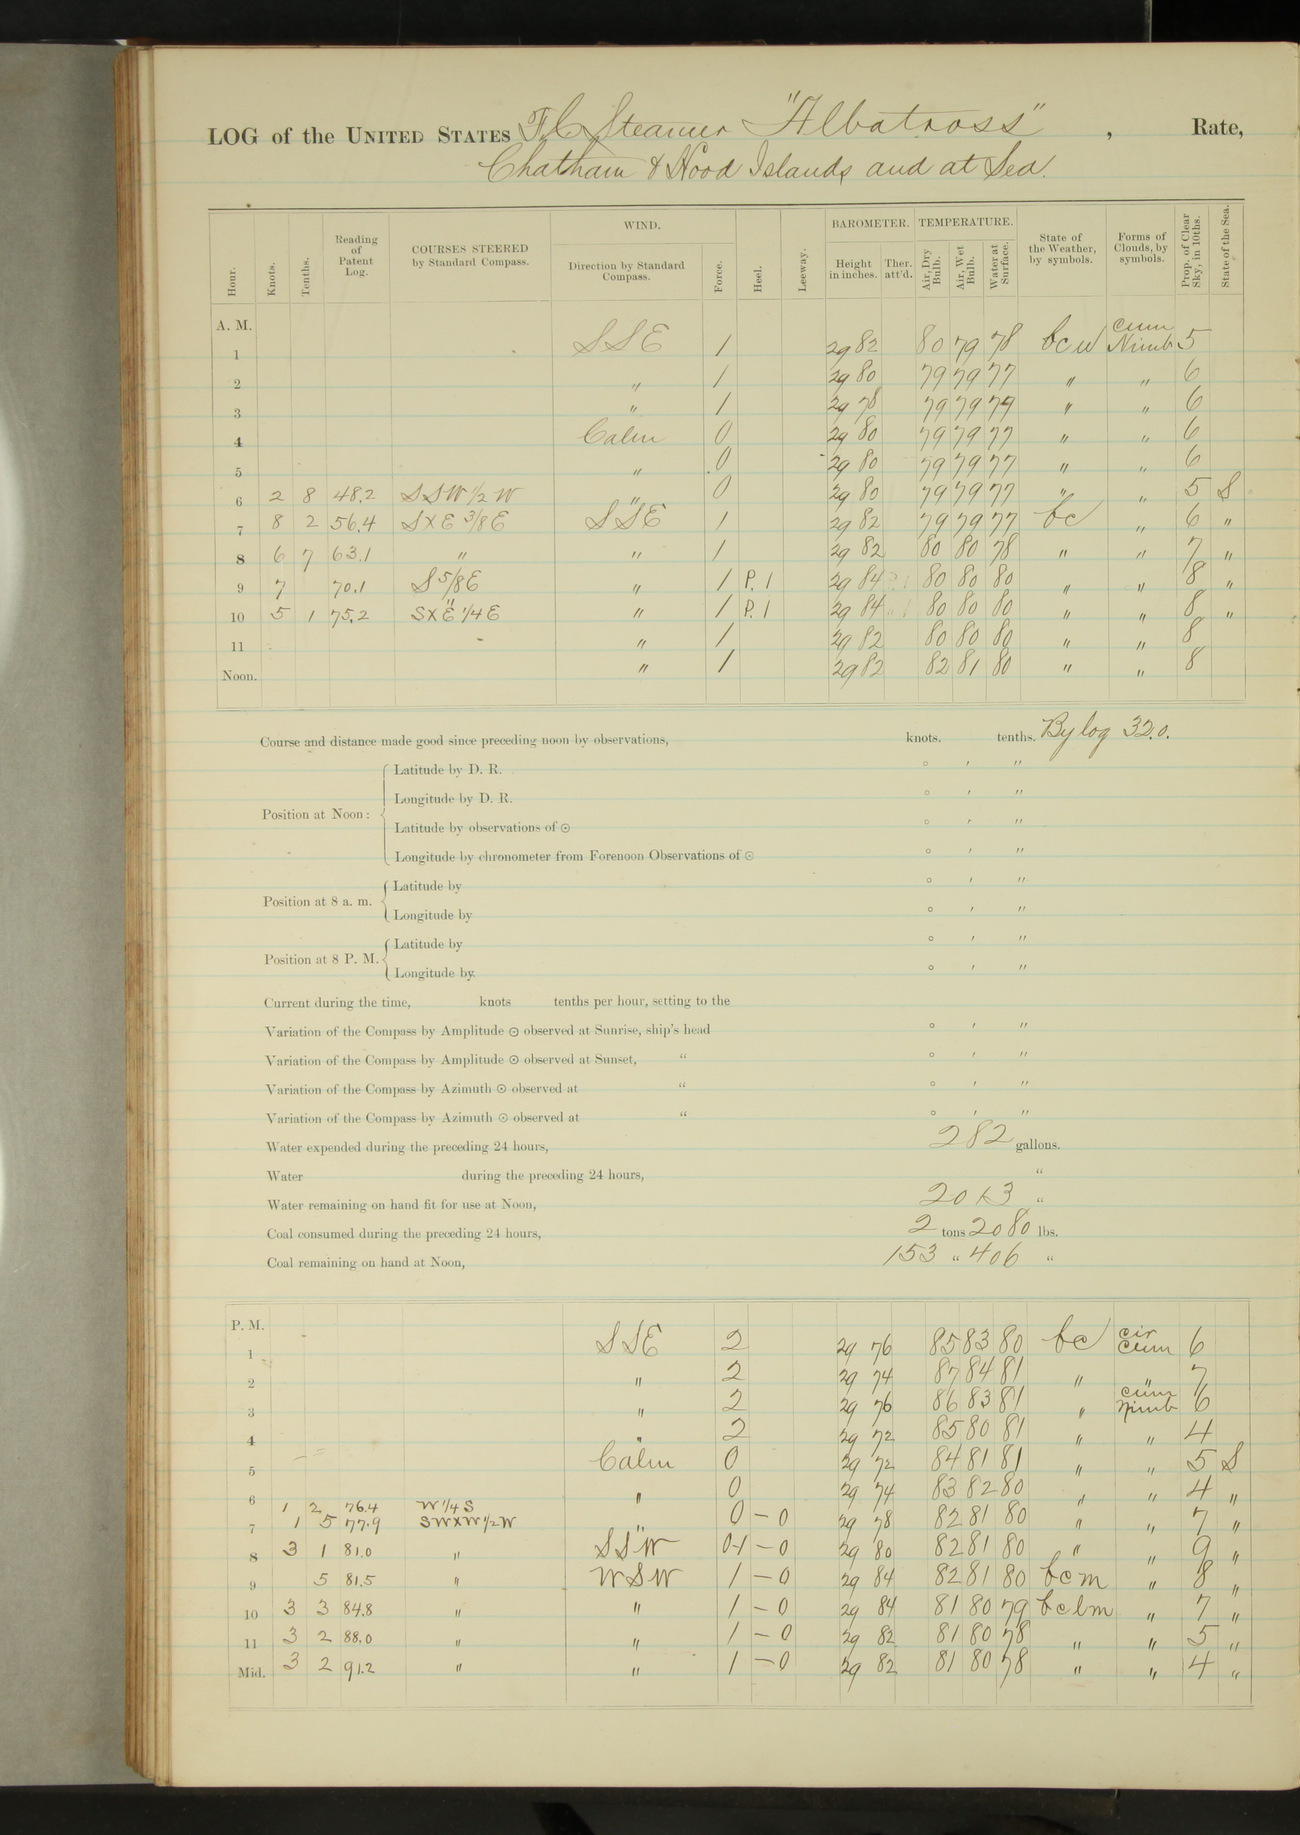 LOG of the UNITED STATES F.C. Steamer "Albatross", Rate,
Chatham & Hood Islands and at Sea.
Hour. Knots. Tenths. Reading of Patent Log. COURSES STEERED by Standard Compass. WIND. Direction by Standard Compass. Force. Heel. Leeway. BAROMETER. Height in inches. Ther. att'd. TEMPERATURE. Air, Dry Bulb. Air, Wet Bulb. Water at Surface. State of the Weather, by symbols. Forms of Clouds, by symbols. Prop. of Clear Sky, in 10ths. State of the Sea.
A. M.
1 SSE 1 29 82 80 79 78 bcu cum Nimb 5
2 " 1 29 80 79 79 77 " " 6
3 " 1 29 78 79 79 79 " " 6
4 Calm 0 29 80 79 79 77 " " 6
5 " 0 29 80 79 79 77 " " 6
6 2 8 48.2 SSW 1/2 W " 0 29 80 79 79 77 " " 5 S
7 8 2 56.4 SXE 3/8 E SSE 1 29 82 79 79 77 bc " 6 "
8 6 7 63.1 " " 1 29 82 80 80 78 " " 7 "
9 7 70.1 S 5/8 E " 1 P. 1 29 84 80 80 80 " " 8 "
10 5 1 75.2 SXE 1/4 E " 1 P. 1 29 84 80 80 80 " " 8 "
11 " 1 29 82 80 80 80 " " 8
Noon. " 1 29 82 82 81 80 " " 8
Course and distance made good since preceding noon by observations, knots. tenths. By log 32.0.
Position at Noon: Latitude by D. R. ° ' "
Longitude by D. R. ° ' "
Latitude by observations of ⊙ ° ' "
Longitude by chronometer from Forenoon Observations of ⊙ ° ' "
Position at 8 a. m. Latitude by ° ' "
Longitude by ° ' "
Position at 8 P. M. Latitude by ° ' "
Longitude by. ° ' "
Current during the time, knots tenths per hour, setting to the
Variation of the Compass by Amplitude ⊙ observed at Sunrise, ship's head ° ' "
Variation of the Compass by Amplitude ⊙ observed at Sunset, " ° ' "
Variation of the Compass by Azimuth ⊙ observed at " ° ' "
Variation of the Compass by Azimuth ⊙ observed at " ° ' "
Water expended during the preceding 24 hours, 282 gallons.
Water during the preceding 24 hours, "
Water remaining on hand fit for use at Noon, "
Coal consumed during the preceding 24 hours, 2 tons 2080 lbs.
Coal remaining on hand at Noon, 153 " 406 "
P. M.
1 SSE 2 29 76 85 83 80 bc cir cum 6
2 " 2 29 74 87 84 81 " " 7
3 " 2 29 76 86 83 81 " cum Nimb 6
4 " 2 29 72 85 80 81 " " 4
5 Calm 0 29 72 84 81 81 " " 5 S
6 1 2 76.4 W 1/4 S " 0 29 74 83 82 80 " " 4 "
7 1 5 77.9 SWXW 1/2 W " 0 - 0 29 78 82 81 80 " " 7 "
8 3 1 81.0 " SSW 0-1 - 0 29 80 82 81 80 " " 9 "
9 5 81.5 " WSW 1 - 0 29 84 82 81 80 bcm " 8 "
10 3 3 84.8 " " 1 - 0 29 84 81 80 79 bclm " 7 "
11 3 2 88.0 " " 1 - 0 29 82 81 80 78 " " 5 "
Mid. 3 2 91.2 " " 1 - 0 29 82 81 80 78 " " 4 "